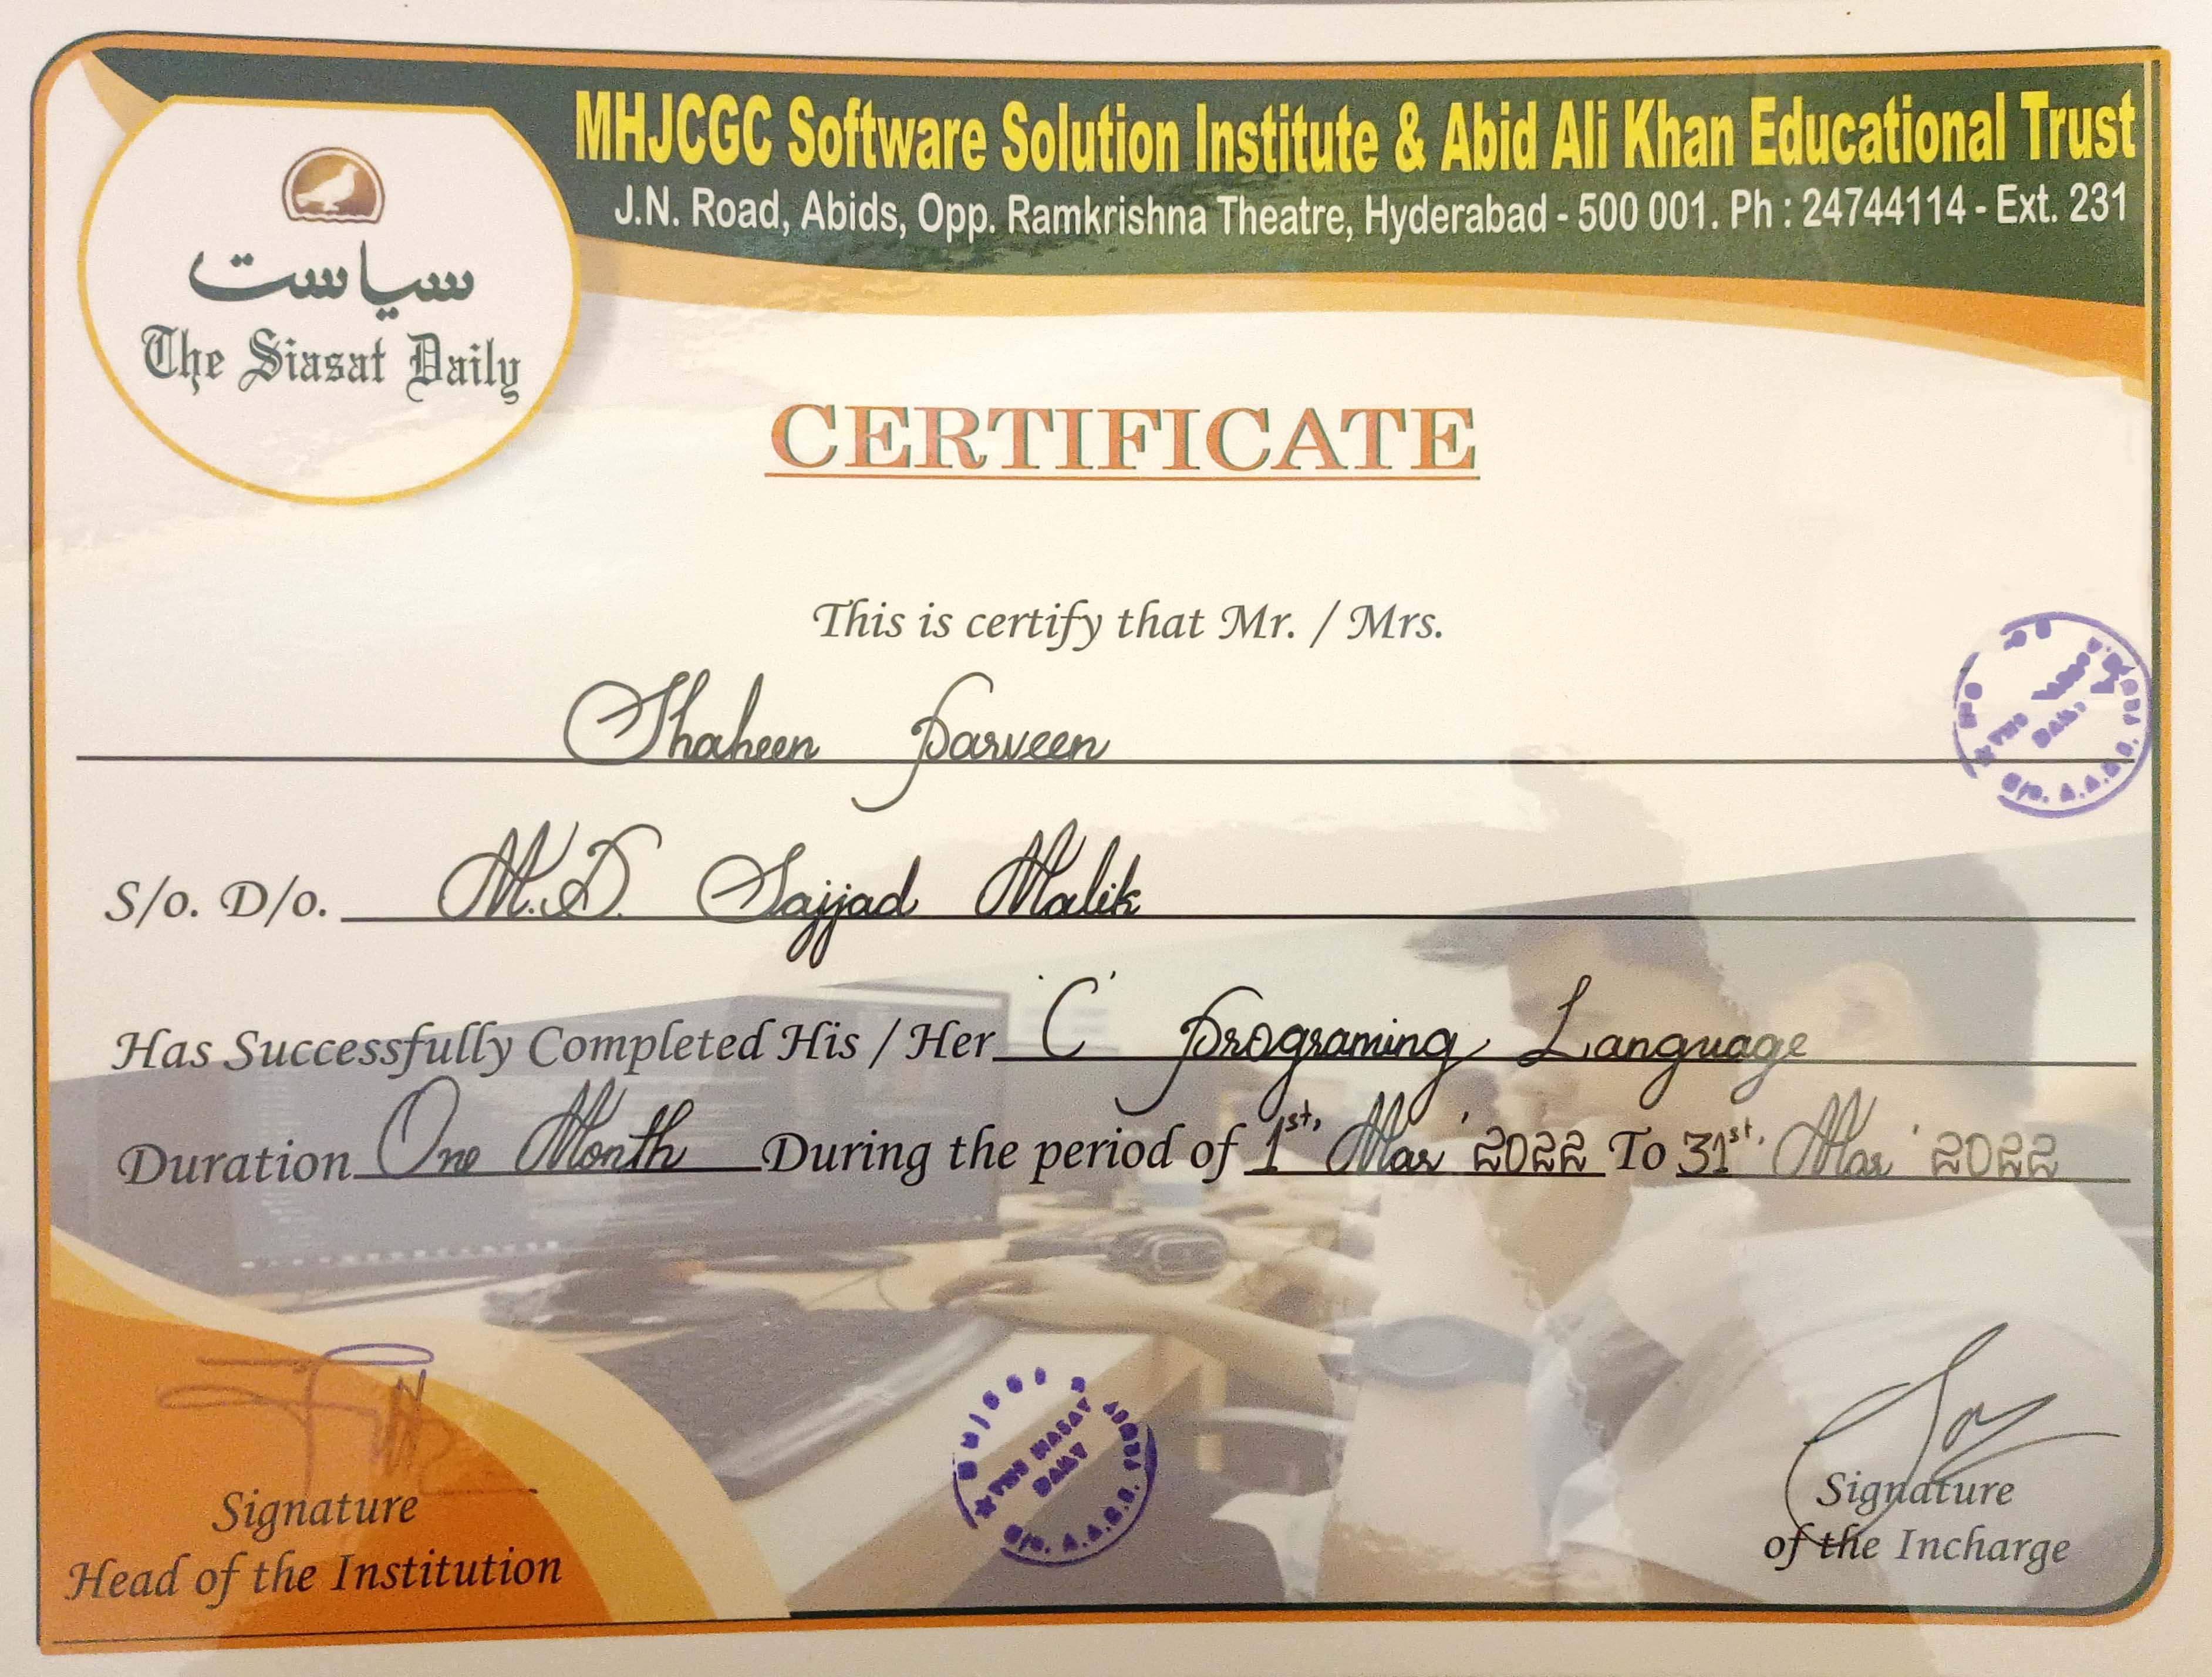 MHJCGC Software Solution Institute & Abid Ali Khan Educational Trust
J.N. Road, Abids, Opp. Ramkrishna Theatre, Hyderabad - 500 001. Ph : 24744114 - Ext. 231
سیاست
The Siasat Daily
CERTIFICATE
This is certify that Mr. / Mrs.
Shaheen Parveen
S/o. D/o. M.D. Sajjad Malik
Has Successfully Completed His / Her 'C' Programing Language
Duration One Month During the period of 1st, Mar' 2022 To 31st, Mar' 2022
THE SIASAT
DAILY
Signature
Head of the Institution
Signature
of the Incharge